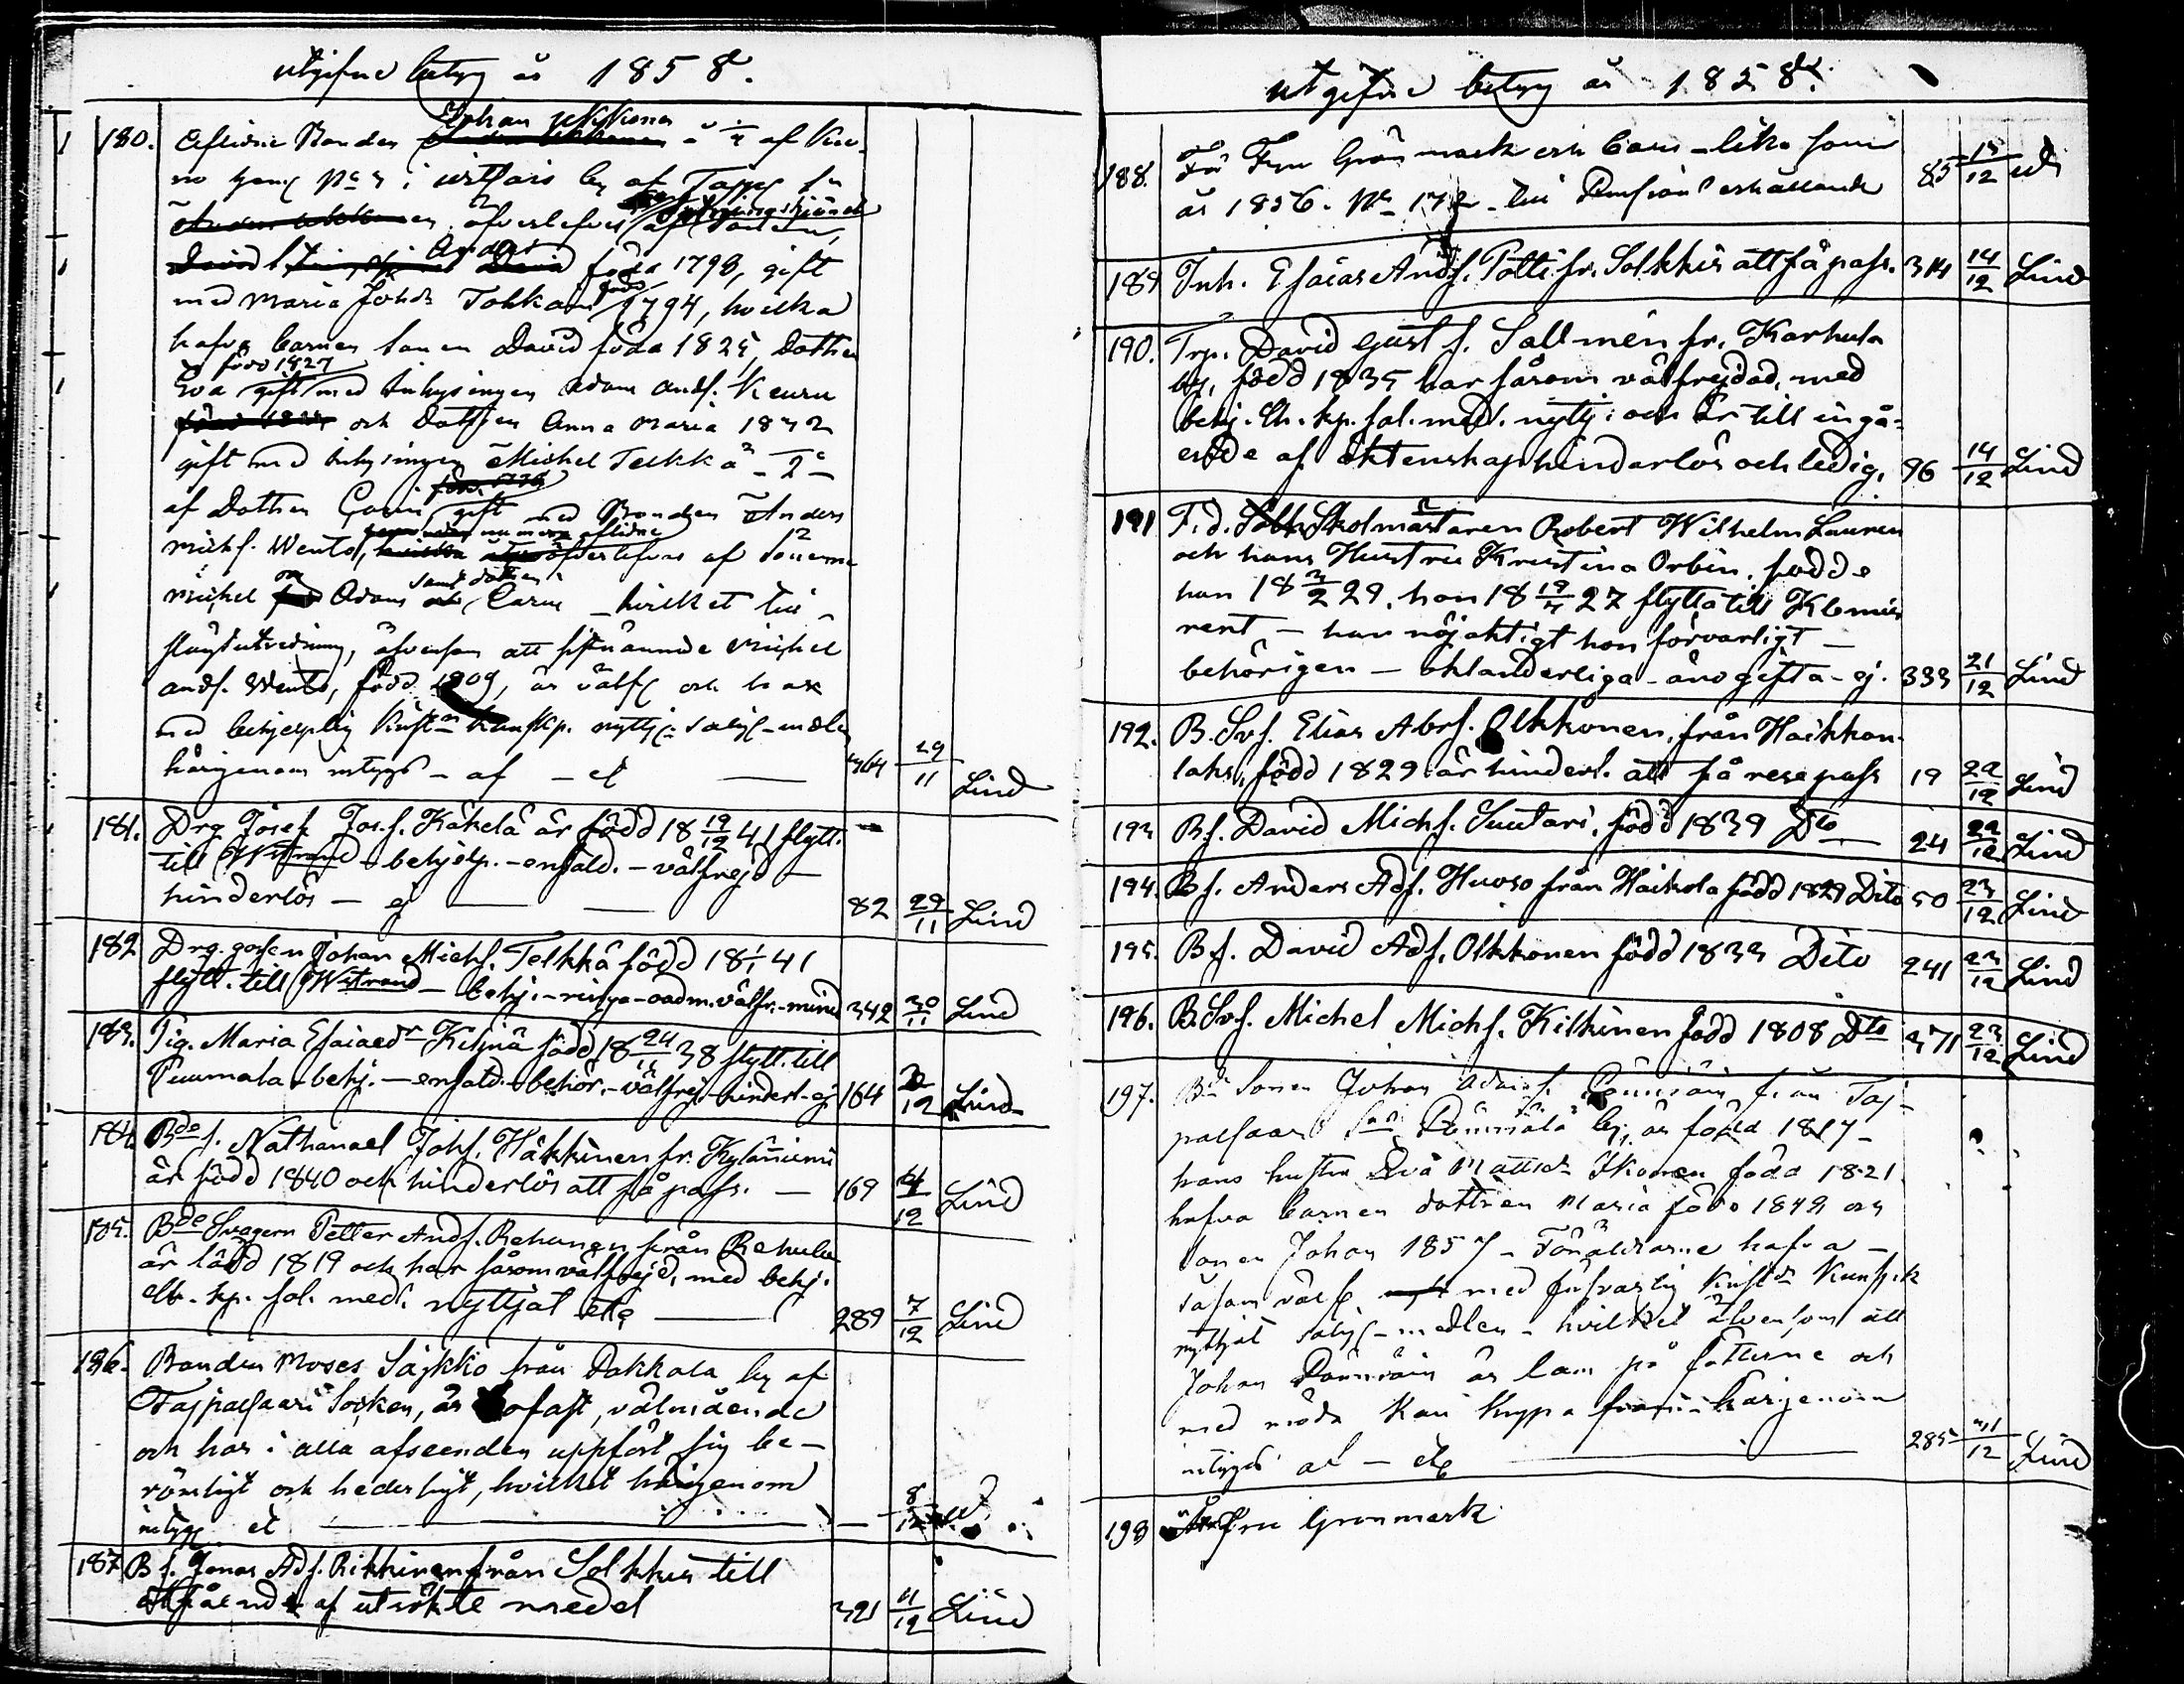 utgifne betyg år 1858.
180. Aflidne Bonden Johan Ukkonen å af
no hem N° i by af
öfverlefves af
Anders född 1798, gift
med Maria Johsdr Tokkain född 1794, hvilka
hafva barnen sonen David född 1825, dottren
född 1827
Eva gift med inhysingen Adam Andf. Keuru
och dottren Anna Maria 1832
gift med inhysingen Michel Telkkä
af dottren Carin gift med Bonden Anders
Michf. Wento, aflidne öfverlefves af sönerne
Michel och Adam samt dottren Carin – hvilket till
utredning, äfvensom att Michel
Andf. Wento, född 1809, är välf och har
med behjelplig kunskp. nyttj. salig-medlen
härigenom intygs – af – et 364 29/11 Lind
181. Drg Josef Jos.f. Käkelä är född 18 19/12 41 flytt.
till Witrand – behjelp. – enfald. – välfrejd –
hinderlös – ej 82 29/11 Lind
182 Drg. gossen Johan Michf. Telkkä född 18 1/1 41
flytt. till Witrand – behj. – ringa – oadm. välfr. – mind 342 30/11 Lind
183. Pig. Maria Efaiaedr Kilpiä född 18 24/11 38 flytt. till
Puumala – behj. – enfald. – behör. – välfrejd – hinderl. – ej 164 2/12 Lind
184 Bdes. Nathanael Johf. Häkkinen fr. Kyläniemi
är född 1840 och hinderlös att få pass. — 169 4/12 Lind
185. Bde Svagern Petter Andf. Rehunen från Rehula
är född 1819 och har såsom välfrejd, med behj.
chr. kp. sal. med. nyttjat etc 289 7/12 Lind
186. Bonden Moses Säjkkö från Pakkala by af
Taipalsaari Socken, är bofast, välmående
och har i alla afseenden uppfört sig be-
römligt och hederligt, hvilket härigenom
intyg et — 8/12
187 B f. Jonas Adf. Rikkinen från Solkkis till
utfående af utsökte medel 321 11/12 Lind
utgifne betyg år 1858.
188. För Fru Gronmark och barn – lika som
år 1856. N° 172 – till Pension erhållande 85 13/12
189 Inh. Efaias Andf. Pötti fr. Solkkis att få pass. 314 14/12 Lind
190. Trp. David Gust f. Sallmén fr. Karhula
by, född 1835 har såsom välfrejdad, med
behj. Ch. kp. sal. med. nyttj. och är till ingå-
ende af äktenskap hinderlös och ledig. 96 14/12 Lind
191 F.d. Skolmästaren Robert Wilhelm Lauren
och hans Hustru Kristina Orbin, födde
han 18 3/2 29. hon 18 19/4 27 flytta till Klemis
rent – han nöjaktigt hon försvarligt –
behörigen – oklanderliga – äro gifta – ej. 333 21/12 Lind
192. B. Svf. Elias Abrf. Olkkonen, från Haikkan-
lahs, född 1829 är hinderl. att få rese pass 19 22/12 Lind
193 Bf. David Michf. Suutari, född 1839 Dto 24 22/12 Lind
194. Bf. Anders Adf. Huoso från Haikola född 1829 Dito 50 23/12 Lind
195. Bf. David Adf. Olkkonen född 1833 Dito 241 23/12 Lind
196. B. Svf. Michel Michf. Kilkinen född 1808 Dto 371 23/12 Lind
197. Bde Sonen Johan Adamf. från Tai-
palsaari by, är född 1817 –
hans hustru Eva Mattsdr Ikonen född 1821
hafva barnen dottren Maria född 1849 och
sonen Johan 1857 – Föräldrarne hafva –
såsom välf med försvarlig kunskp
nyttjat salig-medlen – hvilket äfvensom att
Johan är lam på fötterne och
med möda kan krypa fram – härigenom
intygas af – etc 285 31/12 Lind
198 Fru Gronmark